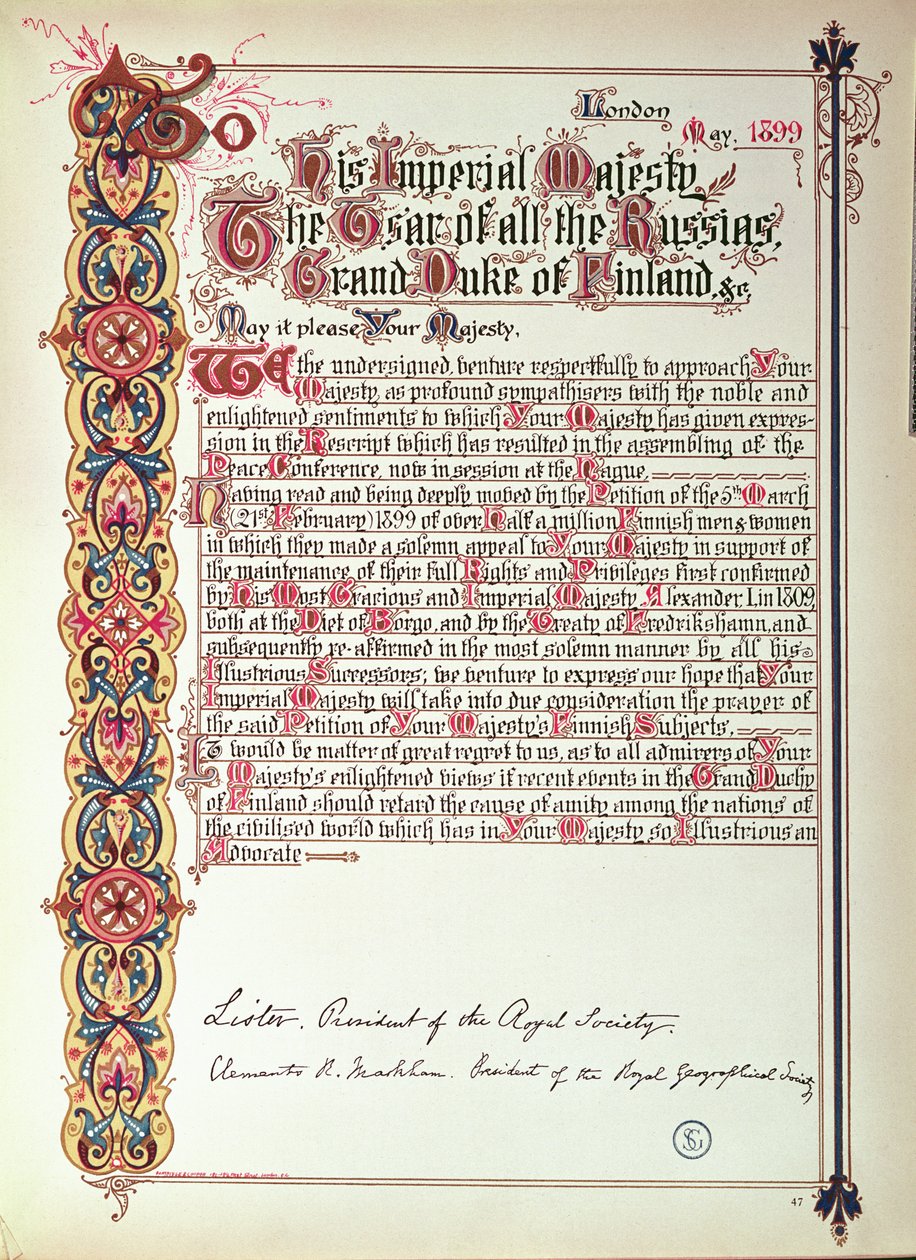 London
May, 1899
To
His Imperial Majesty
The Tsar of all the Russias,
Grand Duke of Finland, &c,
May it please Your Majesty,
We the undersigned, venture respectfully to approach Your
Majesty, as profound sympathisers with the noble and
enlightened sentiments to which Your Majesty has given expres-
sion in the Rescript which has resulted in the assembling of the
Peace Conference, now in session at the Hague,
Having read and being deeply moved by the Petition of the 5th March
(21st February) 1899 of over Half a million Finnish men & women
in which they made a solemn appeal to Your Majesty in support of
the maintenance of their full Rights and Privileges first confirmed
by His Most Gracious and Imperial Majesty, Alexander I, in 1809,
both at the Diet of Borgo, and by the Treaty of Fredrikshamn, and
subsequently re-affirmed in the most solemn manner by all his
Illustrious Successors; we venture to express our hope that Your
Imperial Majesty will take into due consideration the prayer of
the said Petition of Your Majesty's Finnish Subjects,
It would be matter of great regret to us, as to all admirers of Your
Majesty's enlightened views if recent events in the Grand Duchy
of Finland should retard the cause of amity among the nations of
the civilised world which has in Your Majesty so Illustrious an
Advocate
Lister. President of the Royal Society.
Clements R. Markham. President of the Royal Geographical Society
SG
47